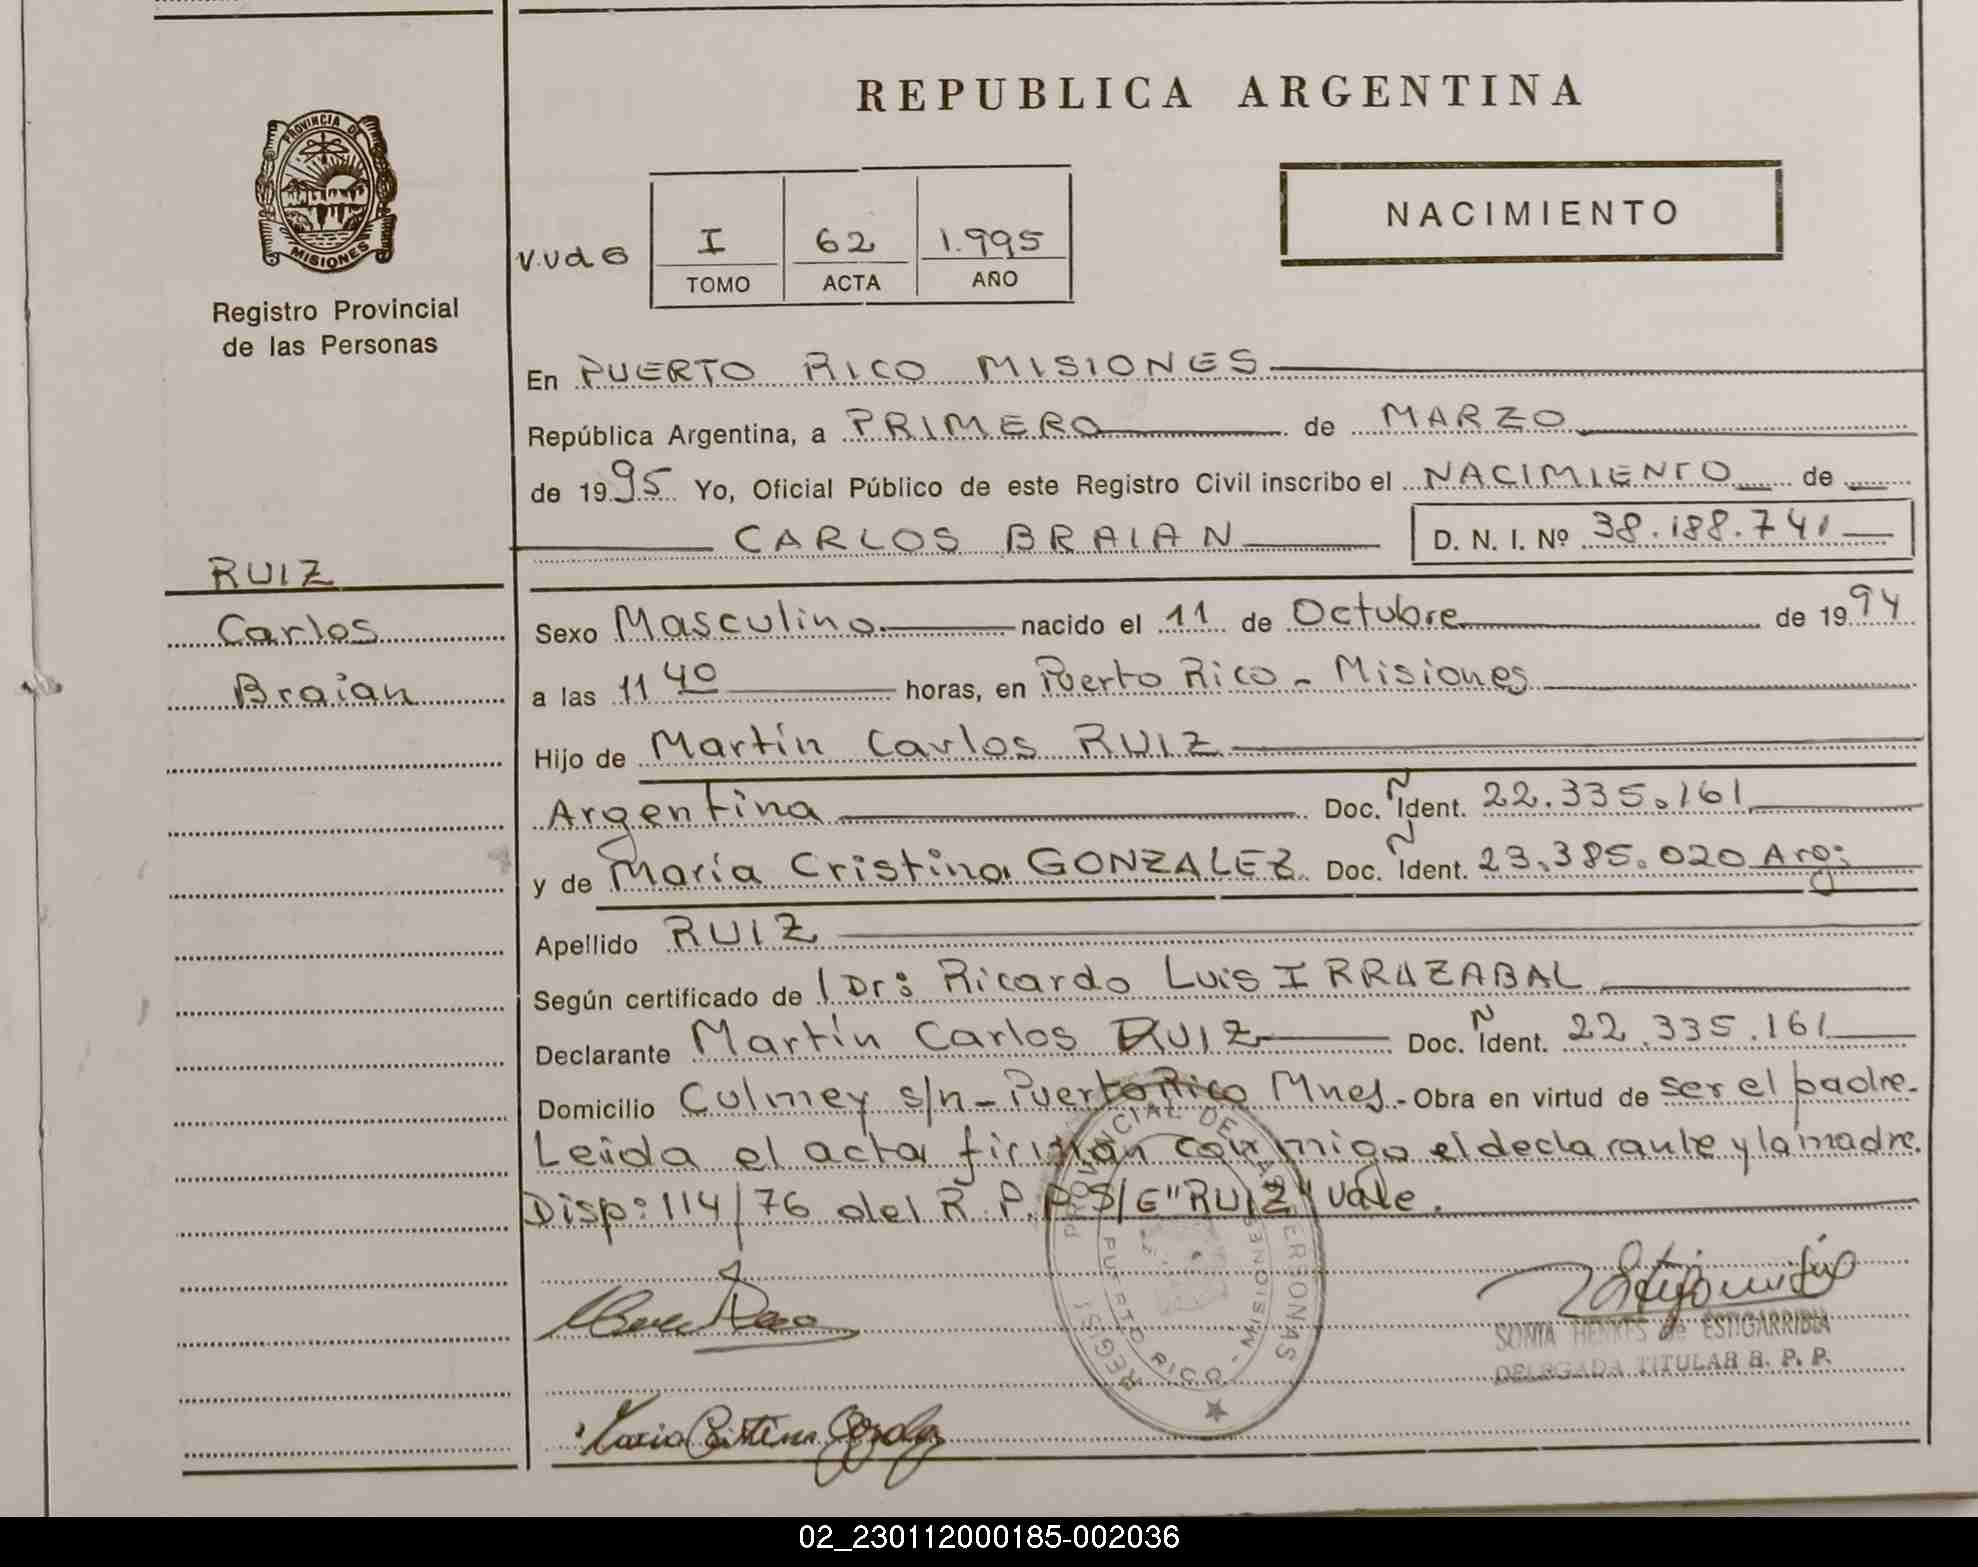 REPUBLICA ARGENTINA
PROVINCIA DE
MISIONES
Registro Provincial
de las Personas
NACIMIENTO
I 62 1.995
TOMO ACTA AÑO
En PUERTO RICO MISIONES
República Argentina, a PRIMERO de MARZO
de 1995 Yo, Oficial Público de este Registro Civil inscribo el NACIMIENTO de
CARLOS BRAIAN D. N. I. Nº 38.188.741
RUIZ
Carlos
Braian
Sexo Masculino nacido el 11 de Octubre de 1994
a las 11 40 horas, en Puerto Rico - Misiones
Hijo de Martín Carlos RUIZ
Argentina Doc. N Ident. 22.335.161
y de María Cristina GONZALEZ Doc. N Ident. 23.385.020 Arg:
Apellido RUIZ
Según certificado de l Dr: Ricardo Luis IRRAZABAL
Declarante Martín Carlos RUIZ Doc. N Ident. 22.335.161
Domicilio Culmey s/n - Puerto Rico Mnes - Obra en virtud de ser el padre.
Leida el acta firman conmigo el declarante y la madre.
Disp: 114/76 del R.P.P. S/E "RUIZ" Vale.
PROVINCIAL DE LAS PERSONAS
PUERTO RICO - MISIONES
María Cristina
SONIA HENKES de ESTIGARRIBIA
DELEGADA TITULAR R. P. P.
02_230112000185-002036